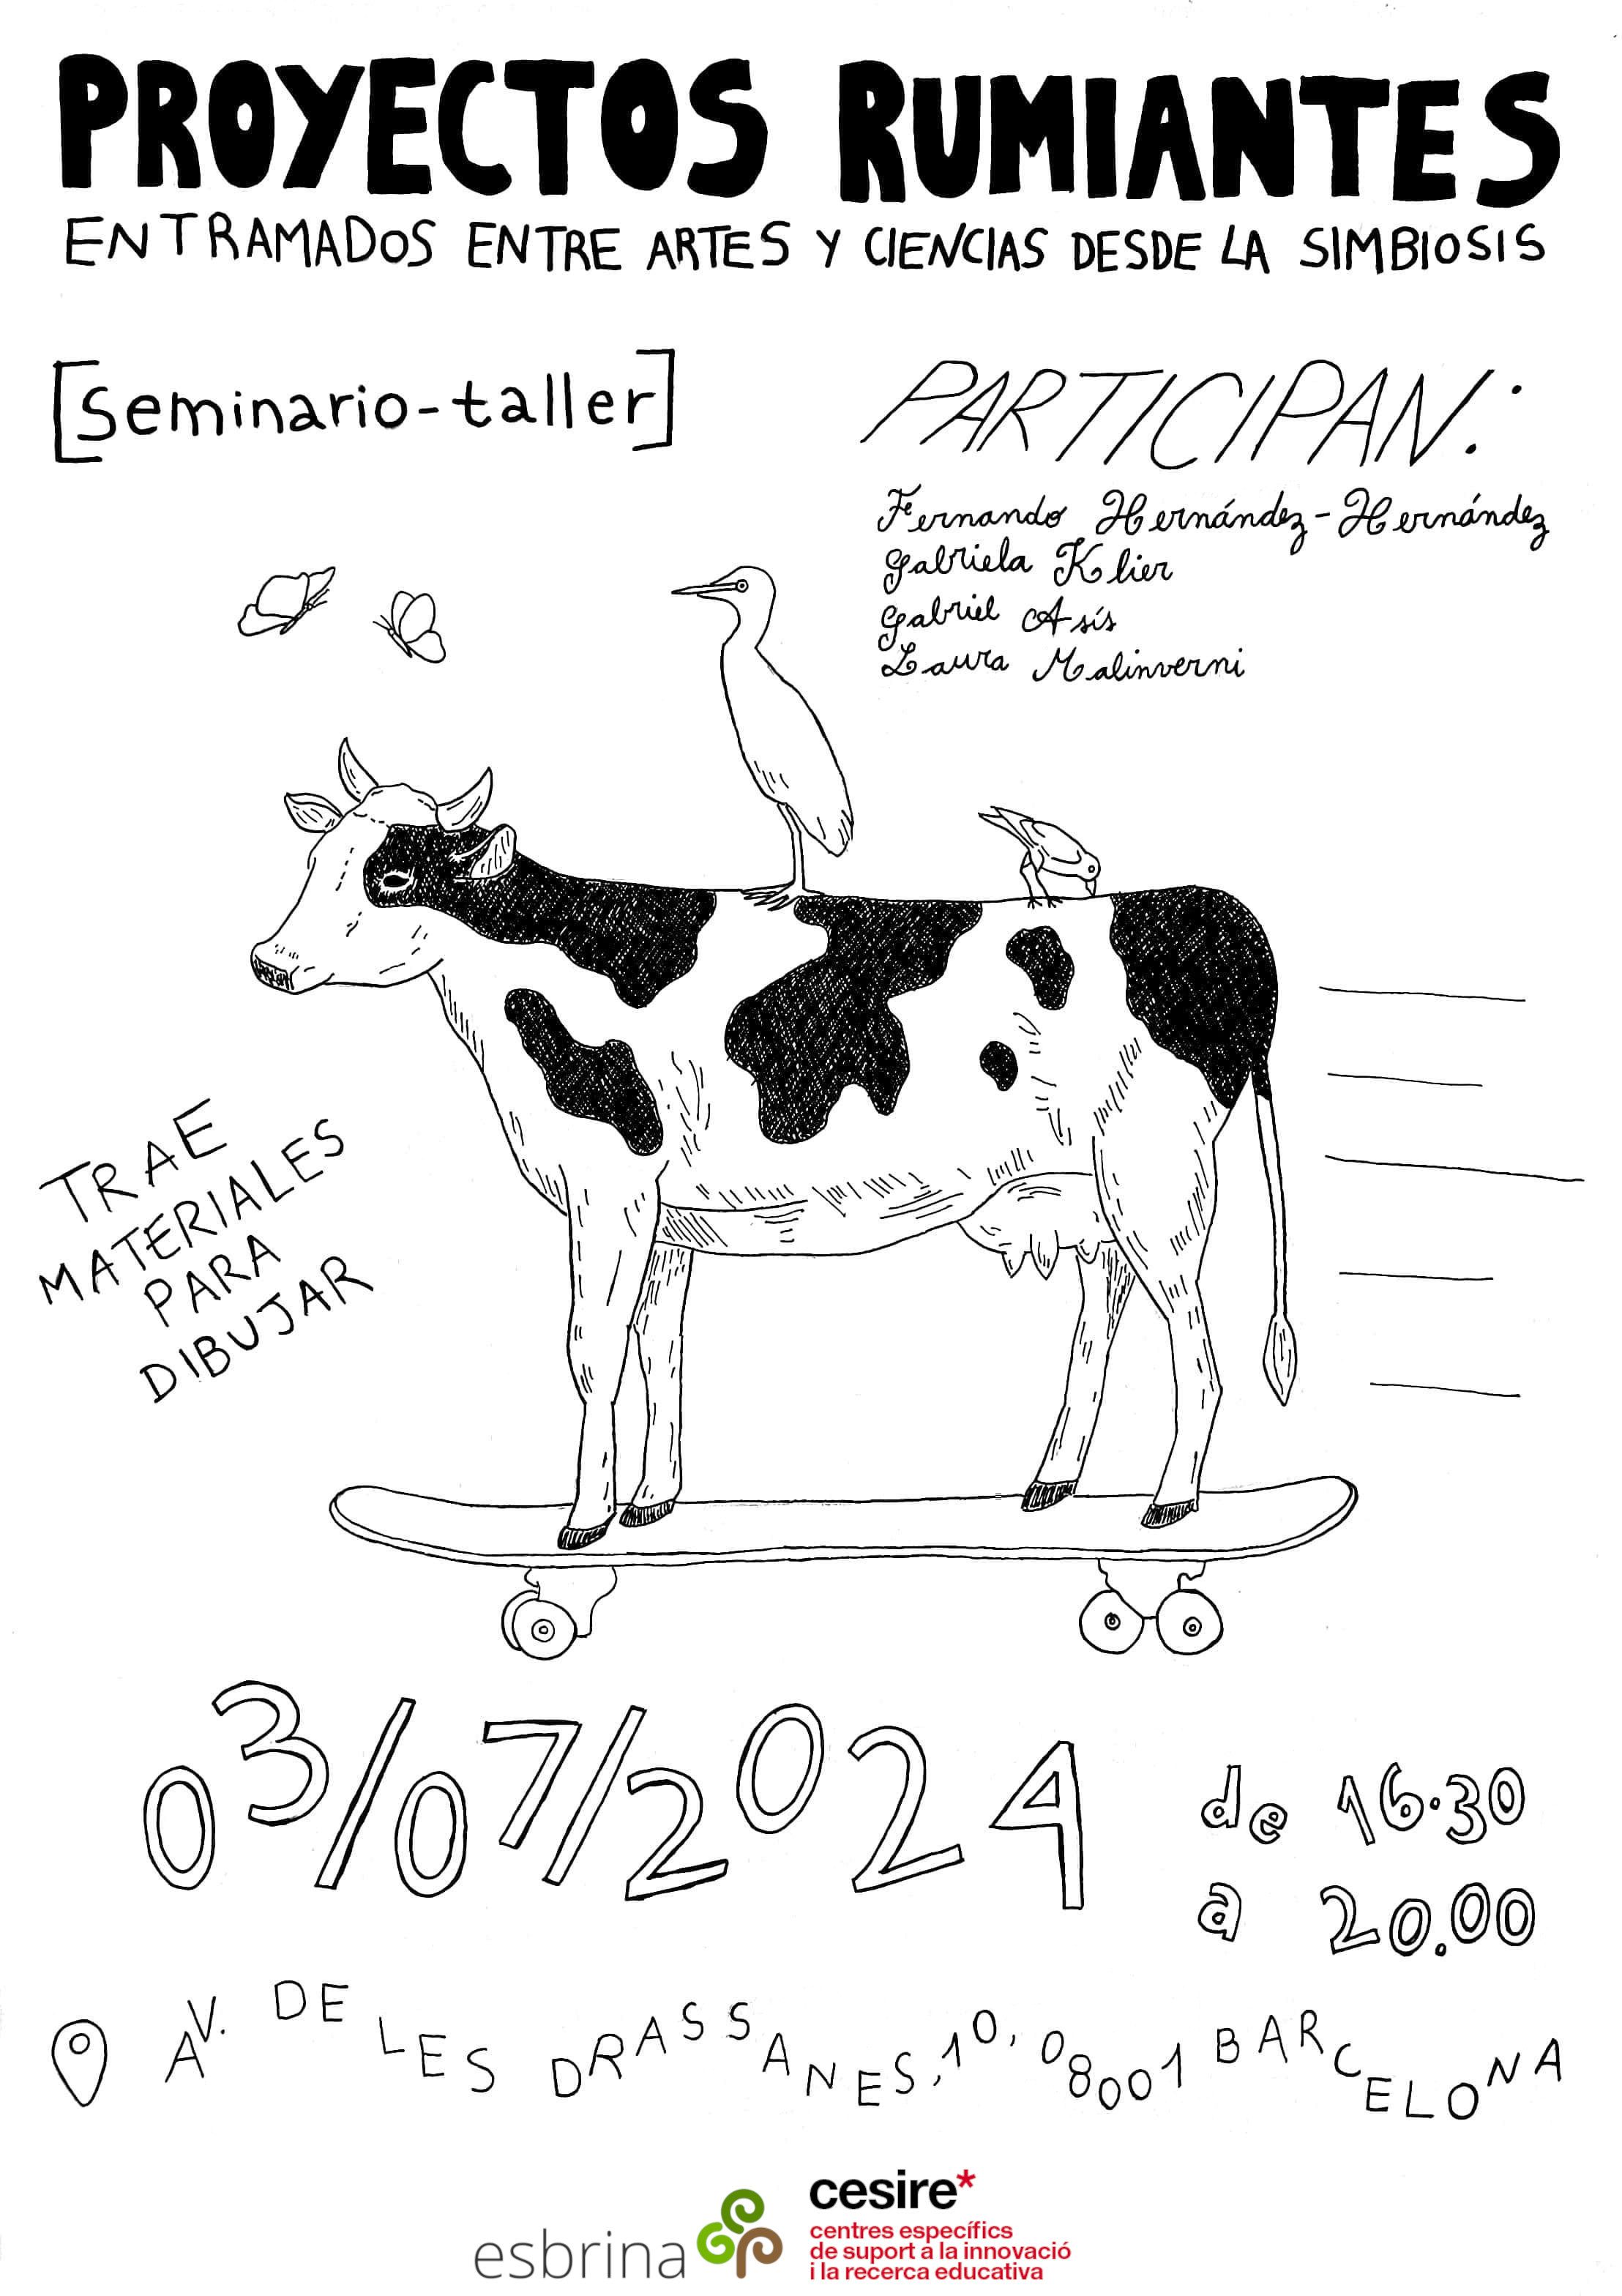 PROYECTOS RUMIANTES
ENTRAMADOS ENTRE ARTES Y CIENCIAS DESDE LA SIMBIOSIS
[seminario-taller]
PARTICIPAN:
Fernando Hernández-Hernández
Gabriela Klier
Gabriel Asís
Laura Malinverni
TRAE
MATERIALES
PARA
DIBUJAR
03/07/2024
de 16.30
a 20.00
AV. DE LES DRASSANES, 10, 08001 BARCELONA
esbrina
cesire*
centres específics
de suport a la innovació
i la recerca educativa